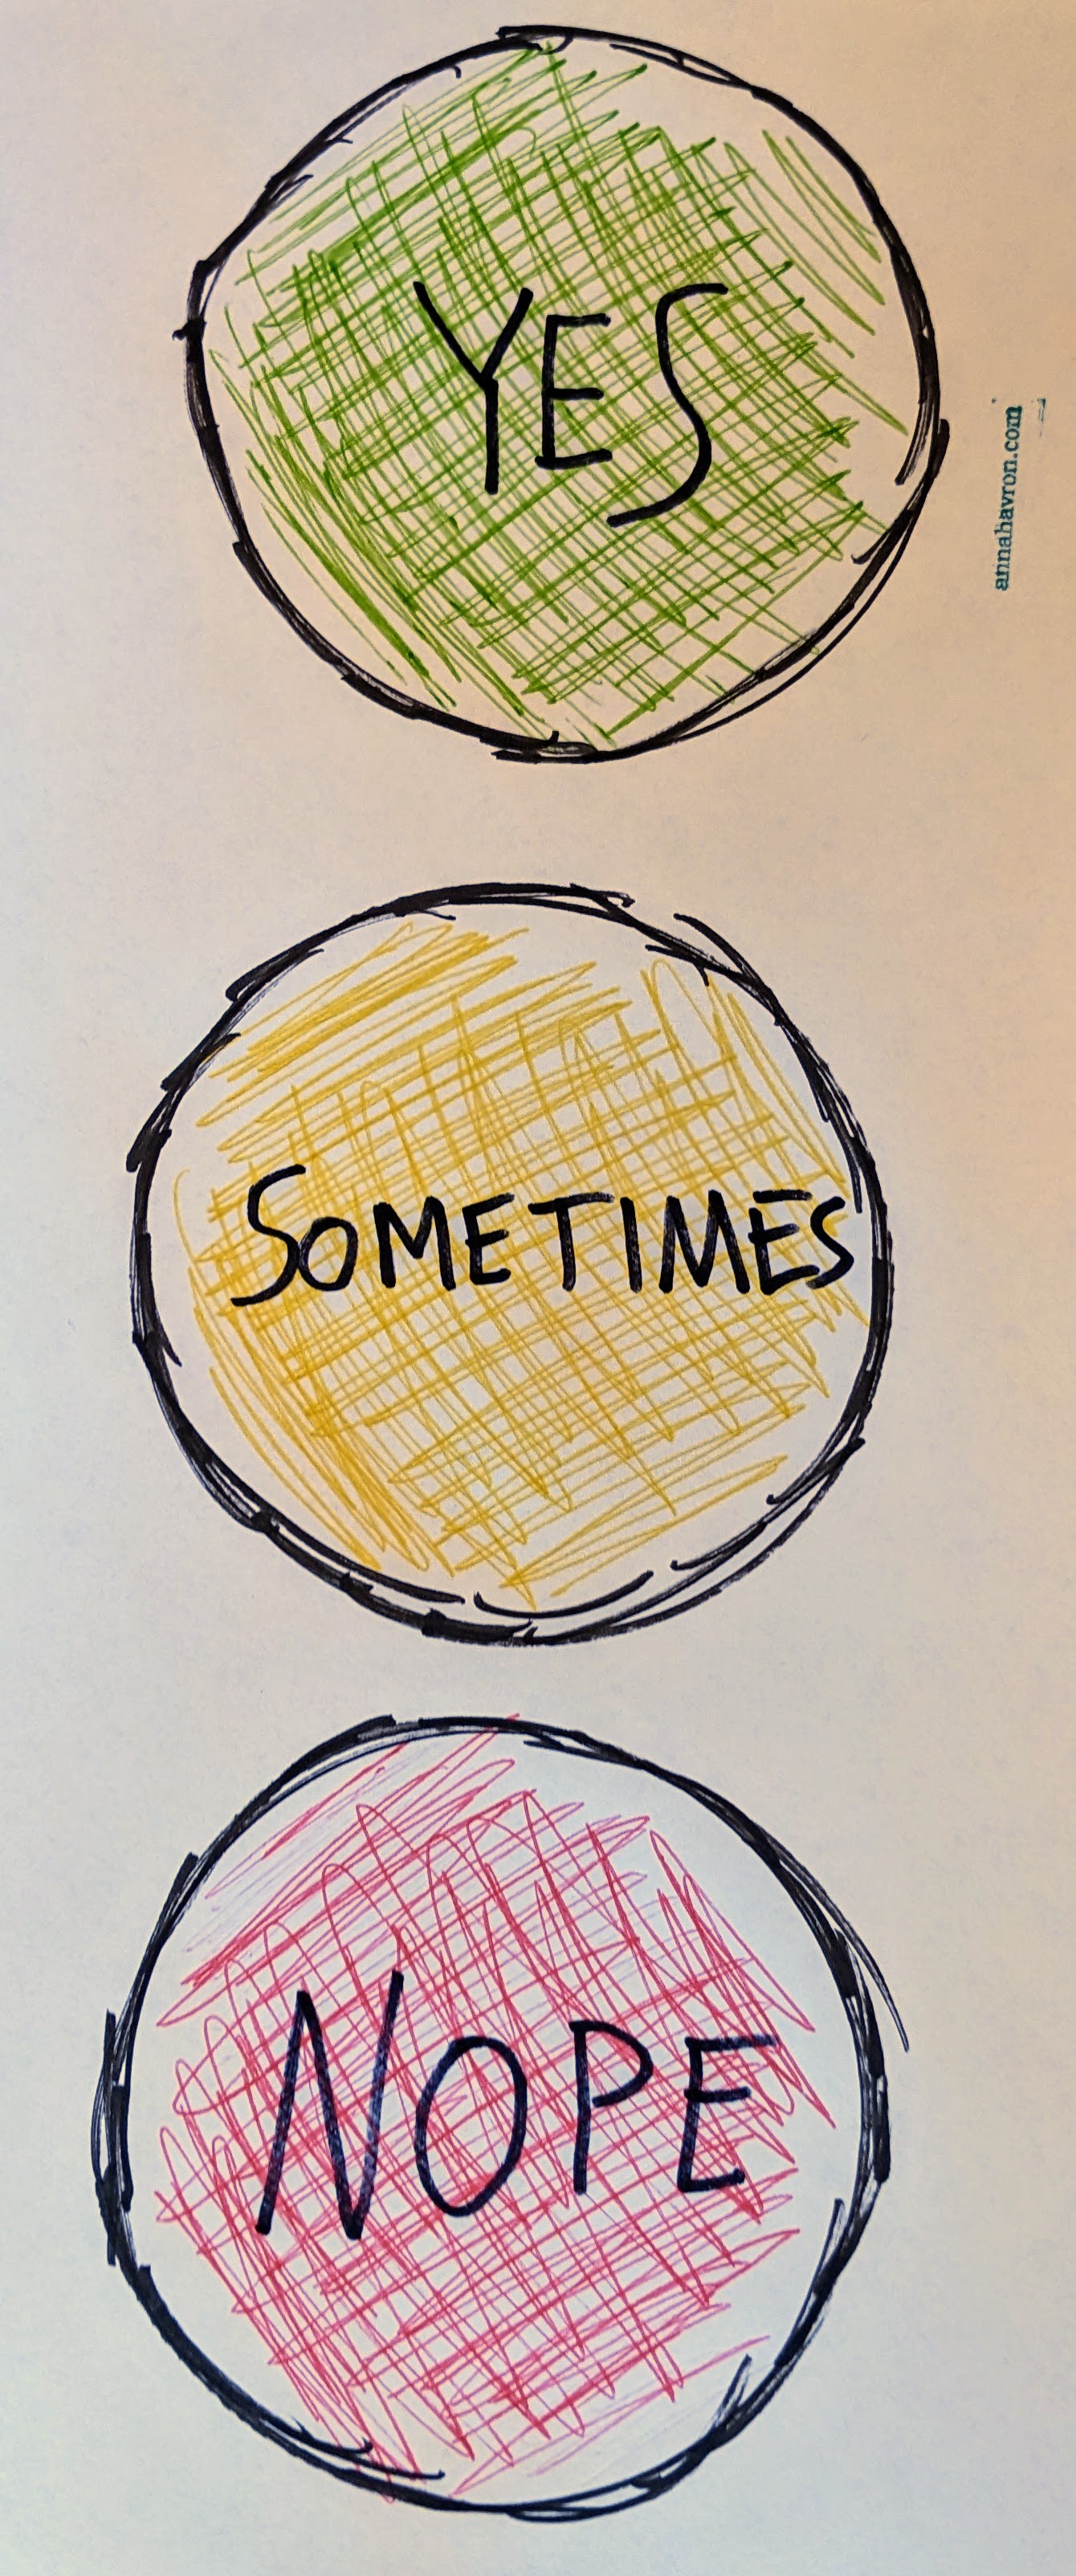 YES
annahavron.com
SOMETIMES
NOPE